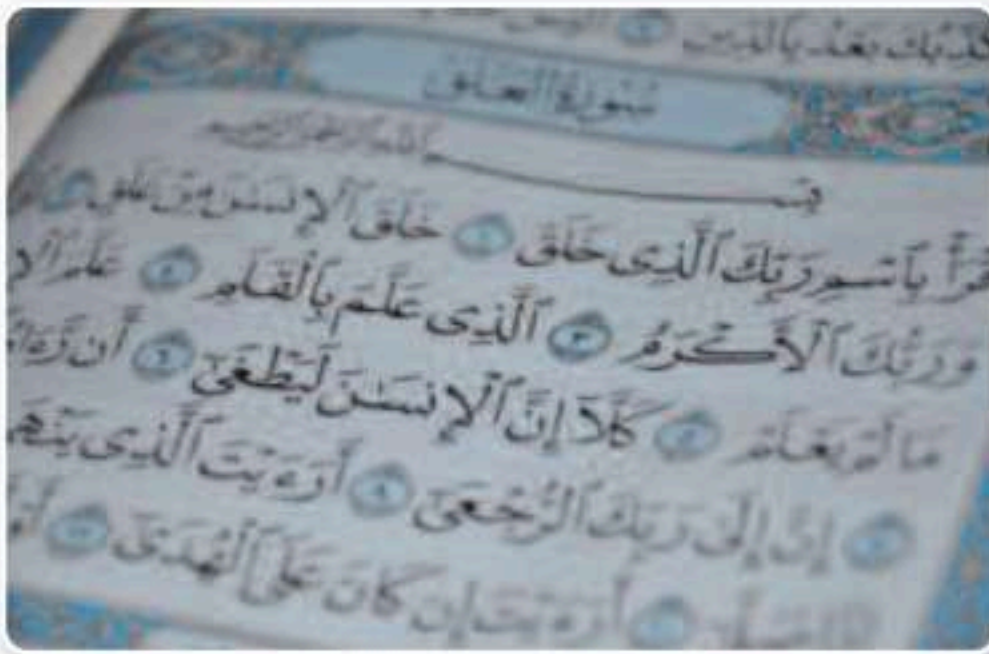 كذبك بعد بالدين ۷
سورة العلق
بسم الله الرحمن الرحيم
قرأ باسم ربك الذي خلق ١ خلق الإنسن من علق ٢
وربك الأكرم ٣ الذي علم بالقلم ٤ علم الإ
ما لم يعلم ٥ كلا إن الإنسن ليطغى ٦ أن رءا
٧ إن إلى ربك الرجعى ٨ أرءيت الذي ينهى
إذا صلى ١٠ أرءيت إن كان على الهدى ١١ أو